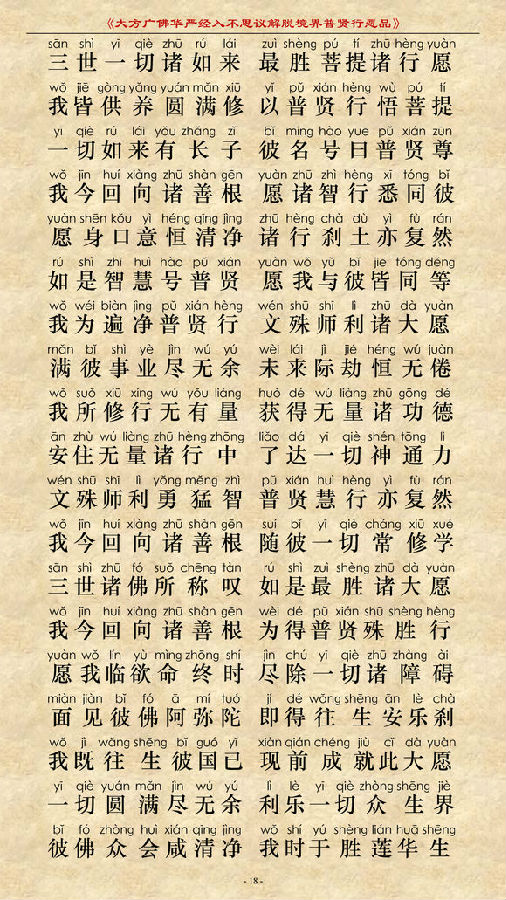 《大方广佛华严经入不思议解脱境界普贤行愿品》
sān shì yī qiè zhū rú lái zuì shèng pú tí zhū hèng yuàn
三世一切诸如来 最胜菩提诸行愿
wǒ jiē gòng yǎng yuán mǎn xiū yǐ pǔ xián hèng wù pú tí
我皆供养圆满修 以普贤行悟菩提
yī qiè rú lái yǒu zhǎng zǐ bǐ míng hào yuē pǔ xián zūn
一切如来有长子 彼名号曰普贤尊
wǒ jīn huí xiàng zhū shàn gēn yuàn zhū zhì hèng xī tóng bǐ
我今回向诸善根 愿诸智行悉同彼
yuàn shēn kǒu yì héng qīng jìng zhū hèng chà dù yì fù rán
愿身口意恒清净 诸行刹土亦复然
rú shì zhì huì hào pǔ xián yuàn wǒ yǔ bǐ jiē tóng děng
如是智慧号普贤 愿我与彼皆同等
wǒ wéi biàn jìng pǔ xián hèng wén shū shī lì zhū dà yuàn
我为遍净普贤行 文殊师利诸大愿
mǎn bǐ shì yè jìn wú yú wèi lái jì jié héng wú juàn
满彼事业尽无余 未来际劫恒无倦
wǒ suǒ xiū xíng wú yǒu liàng huò dé wú liàng zhū gōng dé
我所修行无有量 获得无量诸功德
ān zhù wú liàng zhū hèng zhōng liǎo dá yī qiè shén tōng lì
安住无量诸行中 了达一切神通力
wén shū shī lì yǒng měng zhì pǔ xián huì hèng yì fù rán
文殊师利勇猛智 普贤慧行亦复然
wǒ jīn huí xiàng zhū shàn gēn suí bǐ yī qiè cháng xiū xué
我今回向诸善根 随彼一切常修学
sān shì zhū fó suǒ chēng tàn rú shì zuì shèng zhū dà yuàn
三世诸佛所称叹 如是最胜诸大愿
wǒ jīn huí xiàng zhū shàn gēn wèi dé pǔ xián shū shèng hèng
我今回向诸善根 为得普贤殊胜行
yuàn wǒ lín yù mìng zhōng shí jìn chú yī qiè zhū zhàng ài
愿我临欲命终时 尽除一切诸障碍
miàn jiàn bǐ fó ā mí tuó jí dé wǎng shēng ān lè chà
面见彼佛阿弥陀 即得往生安乐刹
wǒ jì wǎng shēng bǐ guó yǐ xiàn qián chéng jiù cǐ dà yuàn
我既往生彼国已 现前成就此大愿
yī qiè yuán mǎn jìn wú yú lì lè yī qiè zhòng shēng jiè
一切圆满尽无余 利乐一切众生界
bǐ fó zhòng huì xián qīng jìng wǒ shí yú shèng lián huā shēng
彼佛众会咸清净 我时于胜莲华生